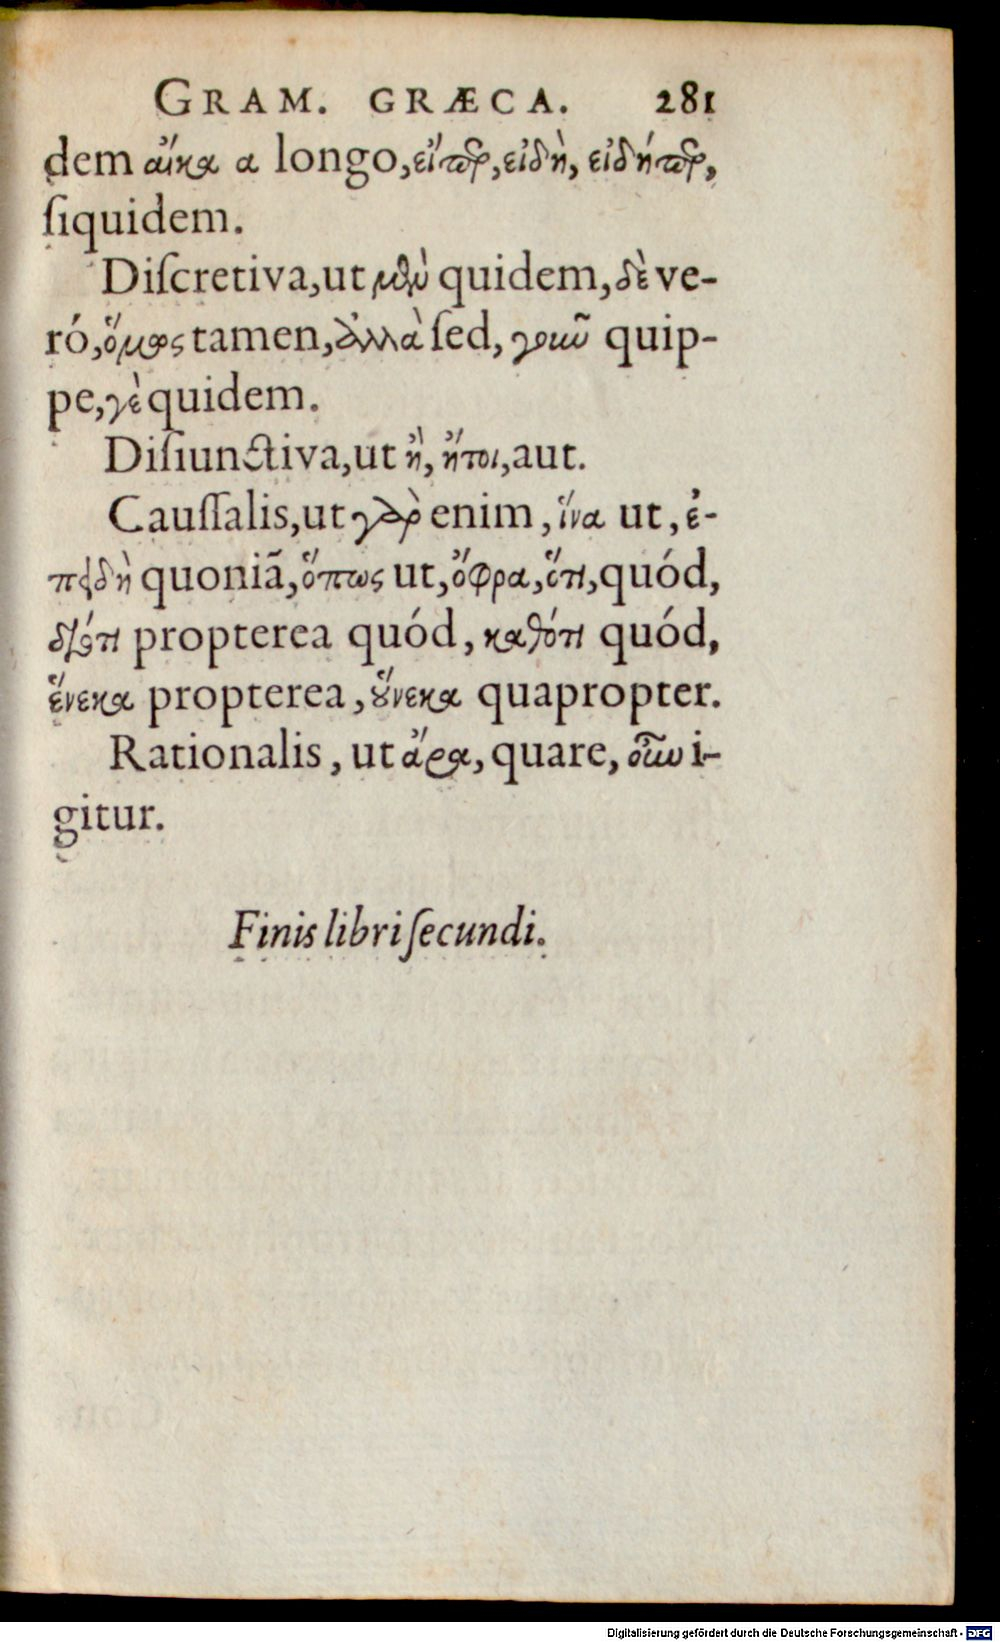 GRAM. GRÆCA. 281
dem αἴκα α longo, εἴπερ, εἰδὴ, εἰδήπερ,
ſiquidem.
Diſcretiva, ut μὲν quidem, δὲ ve-
ró, ὅμως tamen, ἀλλὰ ſed, γοῦν quip-
pe, γὲ quidem.
Diſiunctiva, ut ἢ, ἤτοι, aut.
Cauſſalis, ut γὰρ enim, ἵνα ut, ἐ-
πειδὴ quoniã, ὅπως ut, ὄφρα, ὅτι, quód,
διότι propterea quód, καθότι quód,
ἕνεκα propterea, οὕνεκα quapropter.
Rationalis, ut ἄρα, quare, οὖν i-
gitur.
Finis libri ſecundi.
Digitalisierung gefördert durch die Deutsche Forschungsgemeinschaft - DFG